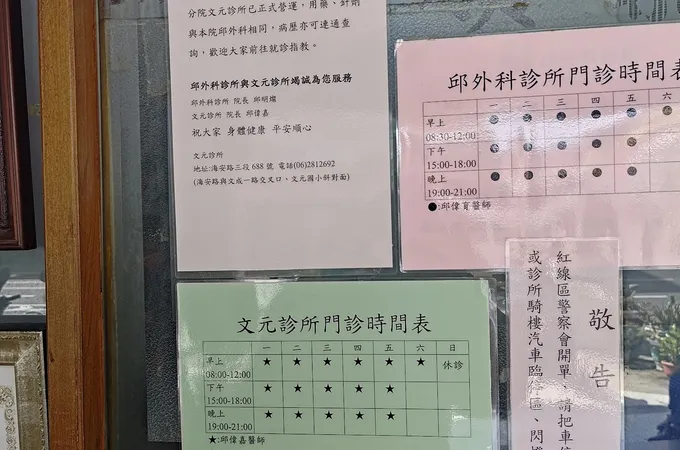 分院文元診所已正式營運，用藥、針劑
與本院邱外科相同，病歷亦可連通查
詢，歡迎大家前往就診指教。
邱外科診所與文元診所竭誠為您服務
邱外科診所 院長 邱明燦
文元診所 院長 邱偉嘉
祝大家 身體健康 平安順心
文元診所
地址:海安路三段 688 號 電話(06)2812692
(海安路與文成一路交叉口、文元國小斜對面)
邱外科診所門診時間表
一 二 三 四 五 六
早上 ● ● ● ● ● ●
08:30-12:00
下午 ● ● ● ● ●
15:00-18:00
晚上 ● ● ● ● ●
19:00-21:00
●:邱偉育醫師
文元診所門診時間表
一 二 三 四 五 六 日
早上 ★ ★ ★ ★ ★ ★ 休診
08:00-12:00
下午 ★ ★ ★ ★ ★
15:00-18:00
晚上 ★ ★ ★ ★ ★
19:00-21:00
★:邱偉嘉醫師
敬告
紅線區警察會開單，請把車
或診所騎樓汽車臨停區、閃